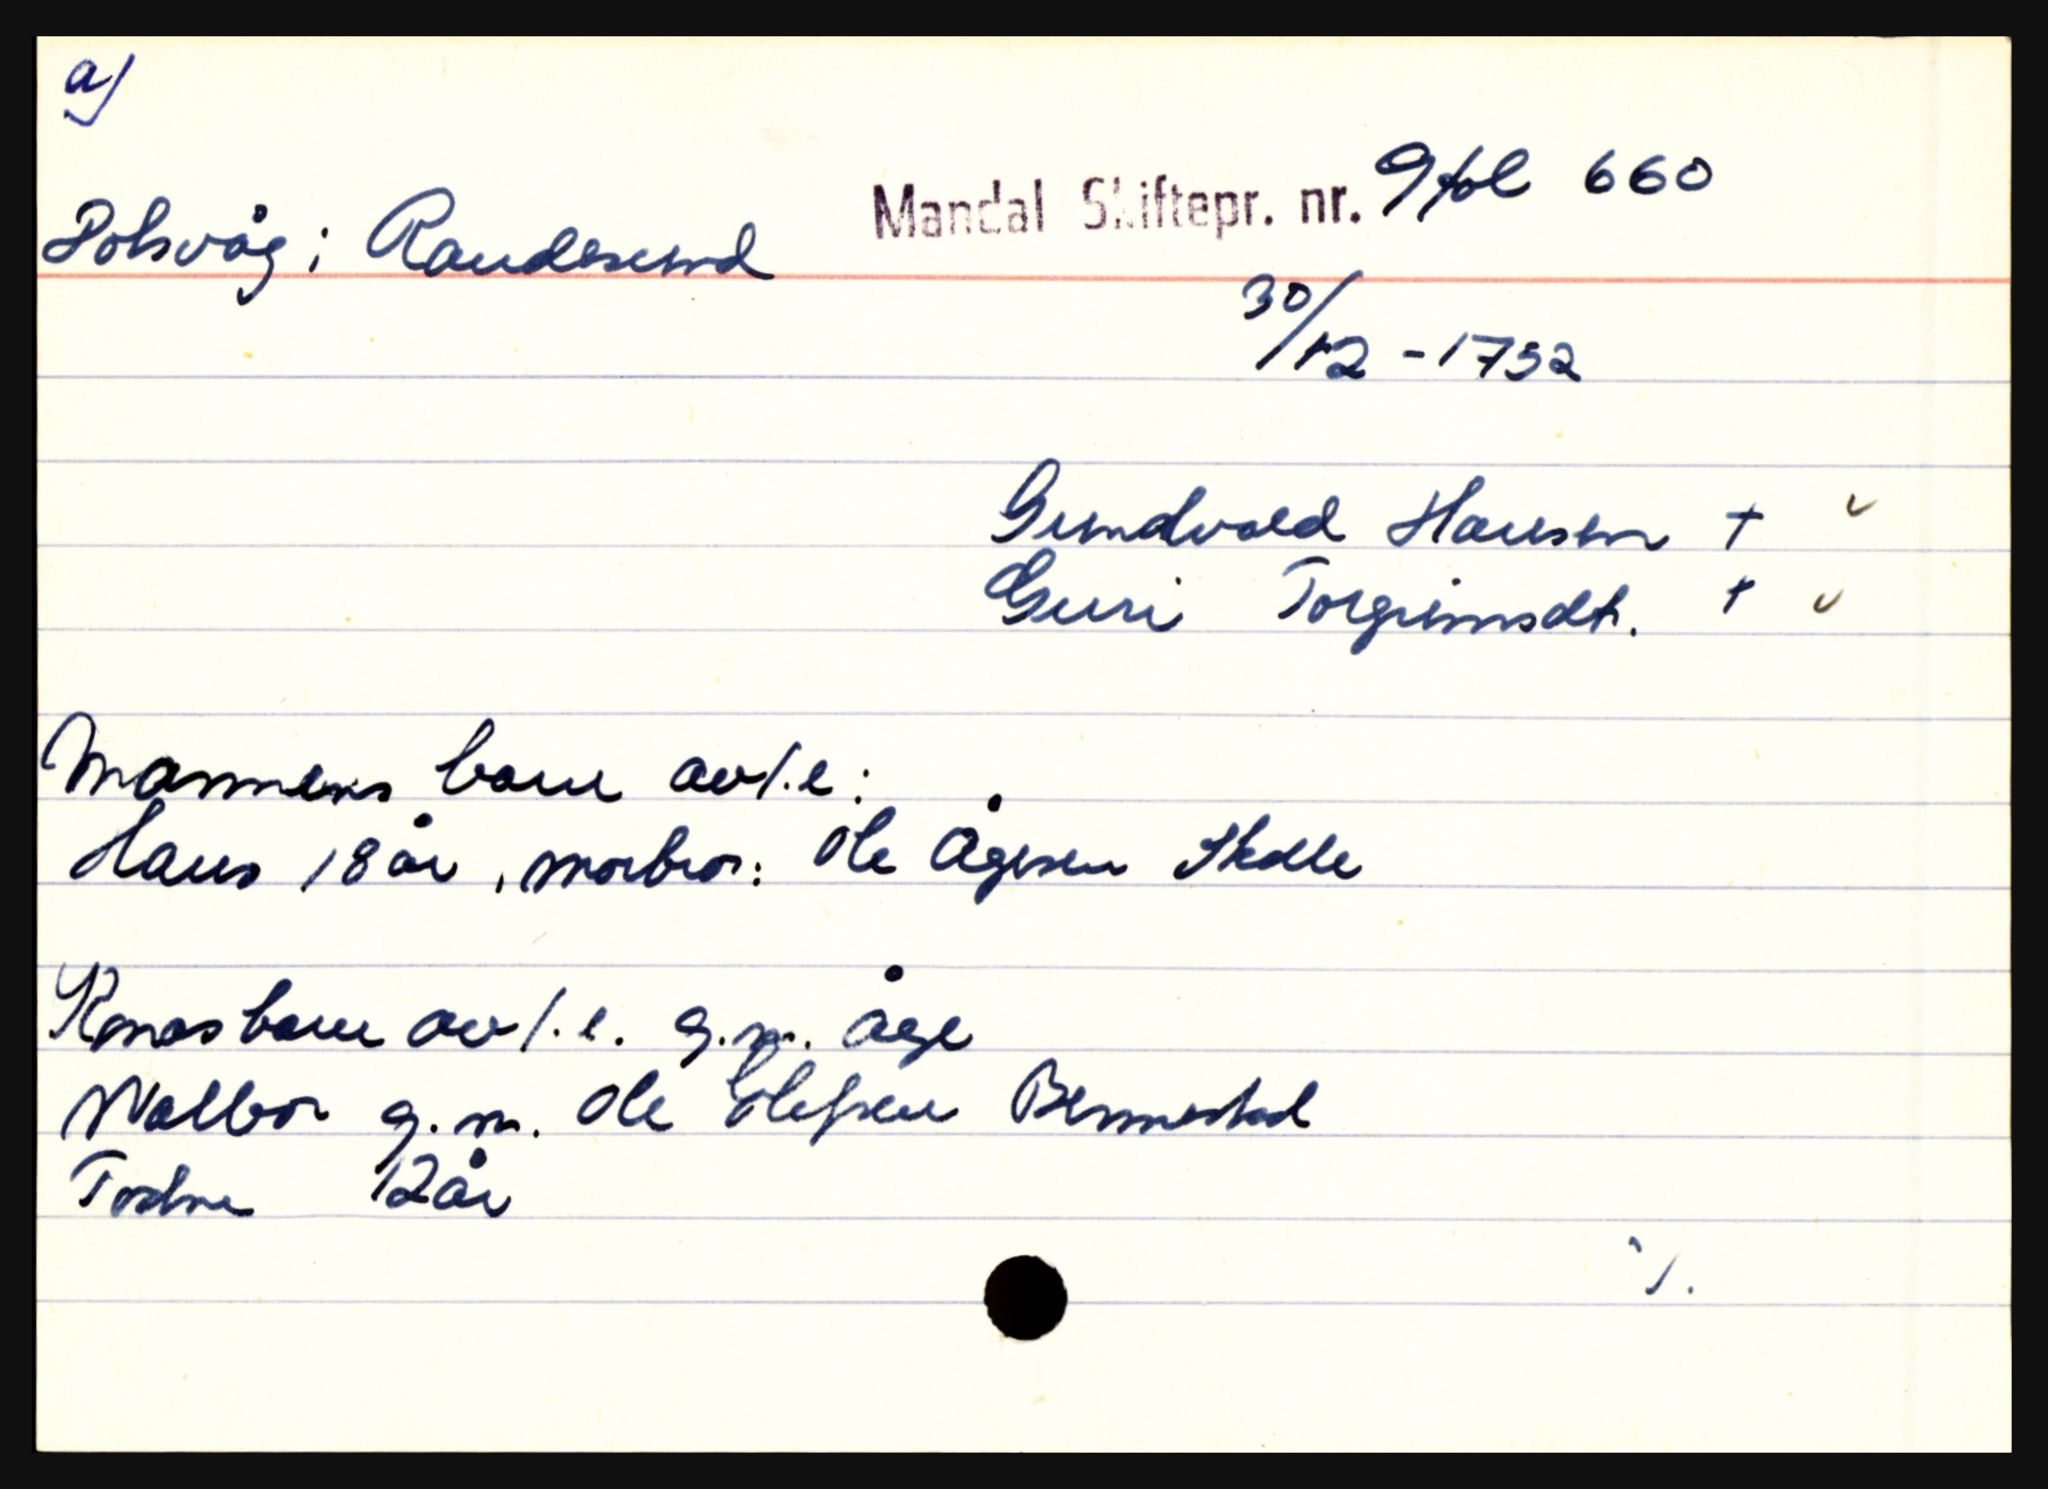 a)
Mandal Skiftepr. nr. 9 fol 660
Dolsvåg i Randesund
30/12 - 1752
Gundvald Hansen †
Guri Torgrimsdt. †
Mannens barn av 1. e:
Hans 18 år, morbror: Ole Ågesen Skålle
Konas barn av 1. e. g.m. Åge
Walbor g.m. Ole Ellefsen Bennestad
Tostne 12 år